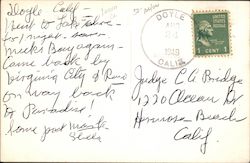 Doyle Calif
Went to Lake Tahoe
for 1 night. saw
Meeks Bay again -
Came back by
Virginia City & Reno
on way back
to Paradise!
Some
DOYLE
AUG
24
1949
CALIF.
1 CENT 1
Judge C A Bridge
1220 Ocean Dr
Hermosa Beach
Calif.